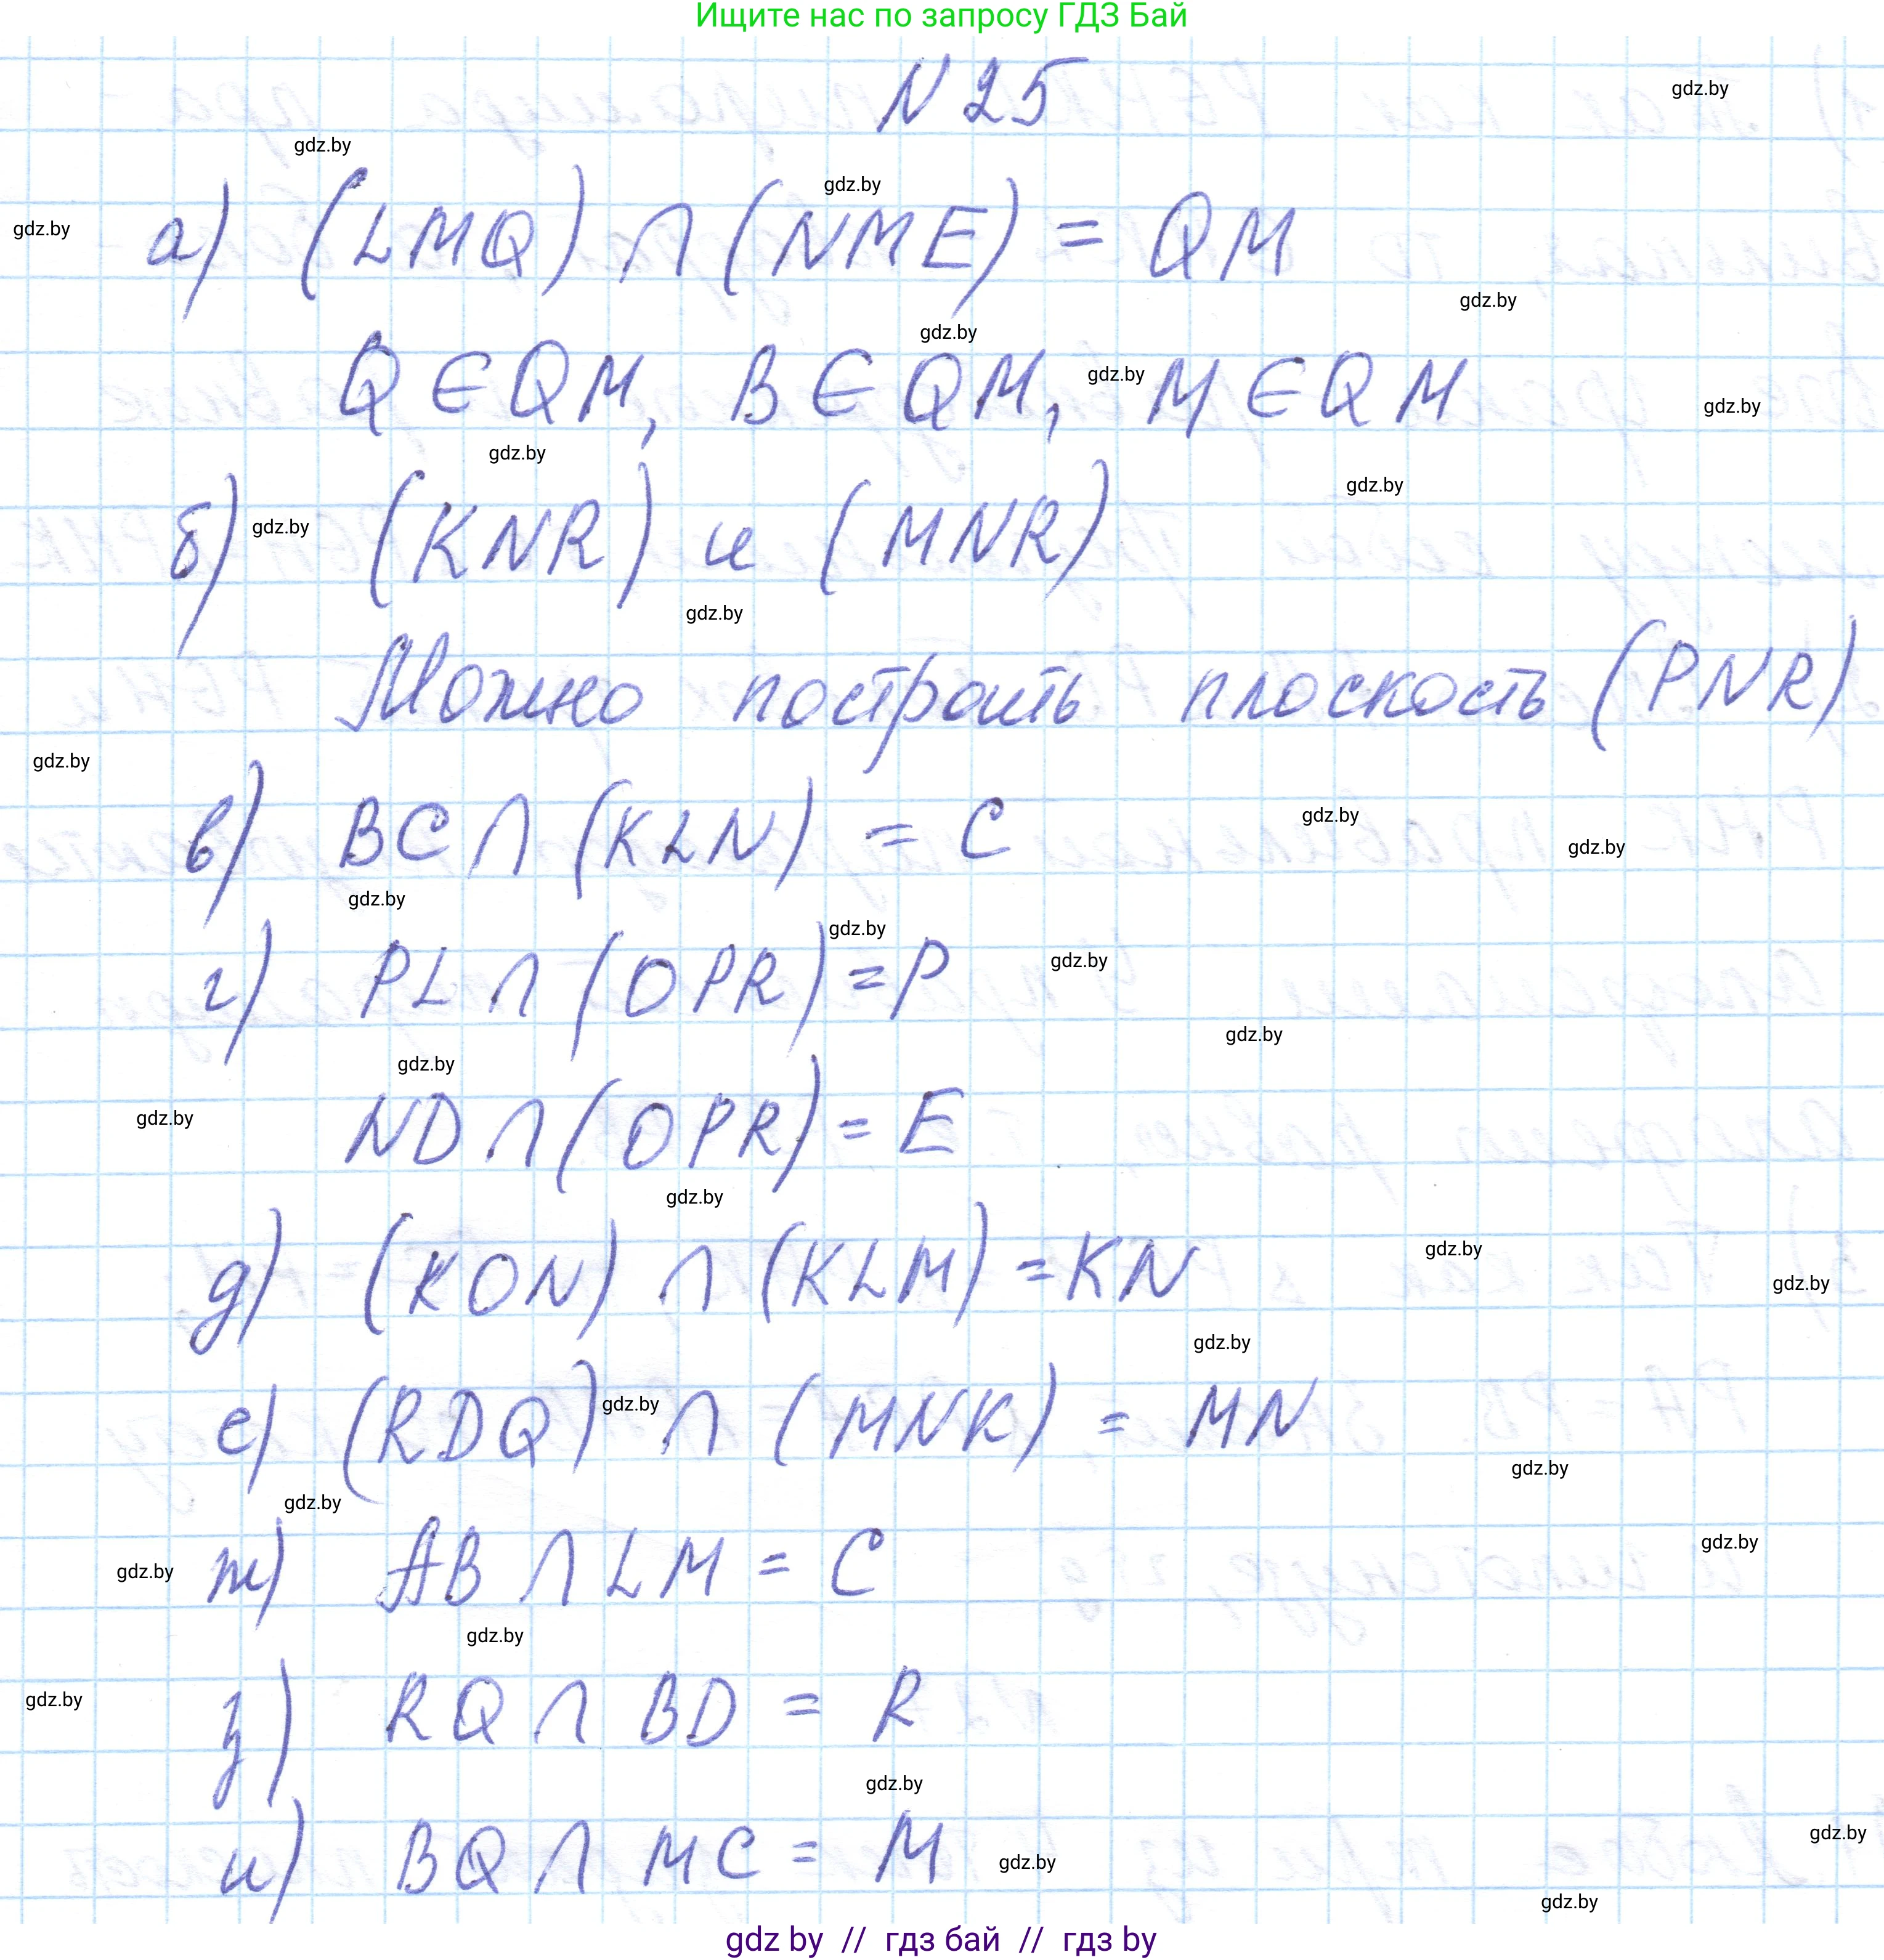 Ищите нас по запросу ГДЗ Бай
N 25
gdz.by
gdz.by
gdz.by
gdz.by
а) (LMQ) ∩ (NME) = QM
gdz.by
gdz.by
Q ∈ QM, B ∈ QM, M ∈ QM
gdz.by
gdz.by
gdz.by
gdz.by
б) (KNR) и (MNR)
gdz.by
gdz.by
Можно построить плоскость (PNR)
gdz.by
в) BC ∩ (KLN) = C
gdz.by
gdz.by
gdz.by
gdz.by
г) PL ∩ (OPR) = P
gdz.by
gdz.by
gdz.by
ND ∩ (OPR) = E
gdz.by
gdz.by
д) (KON) ∩ (KLM) = KN
gdz.by
gdz.by
gdz.by
е) (RDQ) ∩ (MNK) = MN
gdz.by
gdz.by
gdz.by
ж) AB ∩ LM = C
gdz.by
gdz.by
gdz.by
з) RQ ∩ BD = R
gdz.by
gdz.by
и) BQ ∩ MC = M
gdz.by
gdz.by
gdz.by
gdz by // гдз бай // гдз by